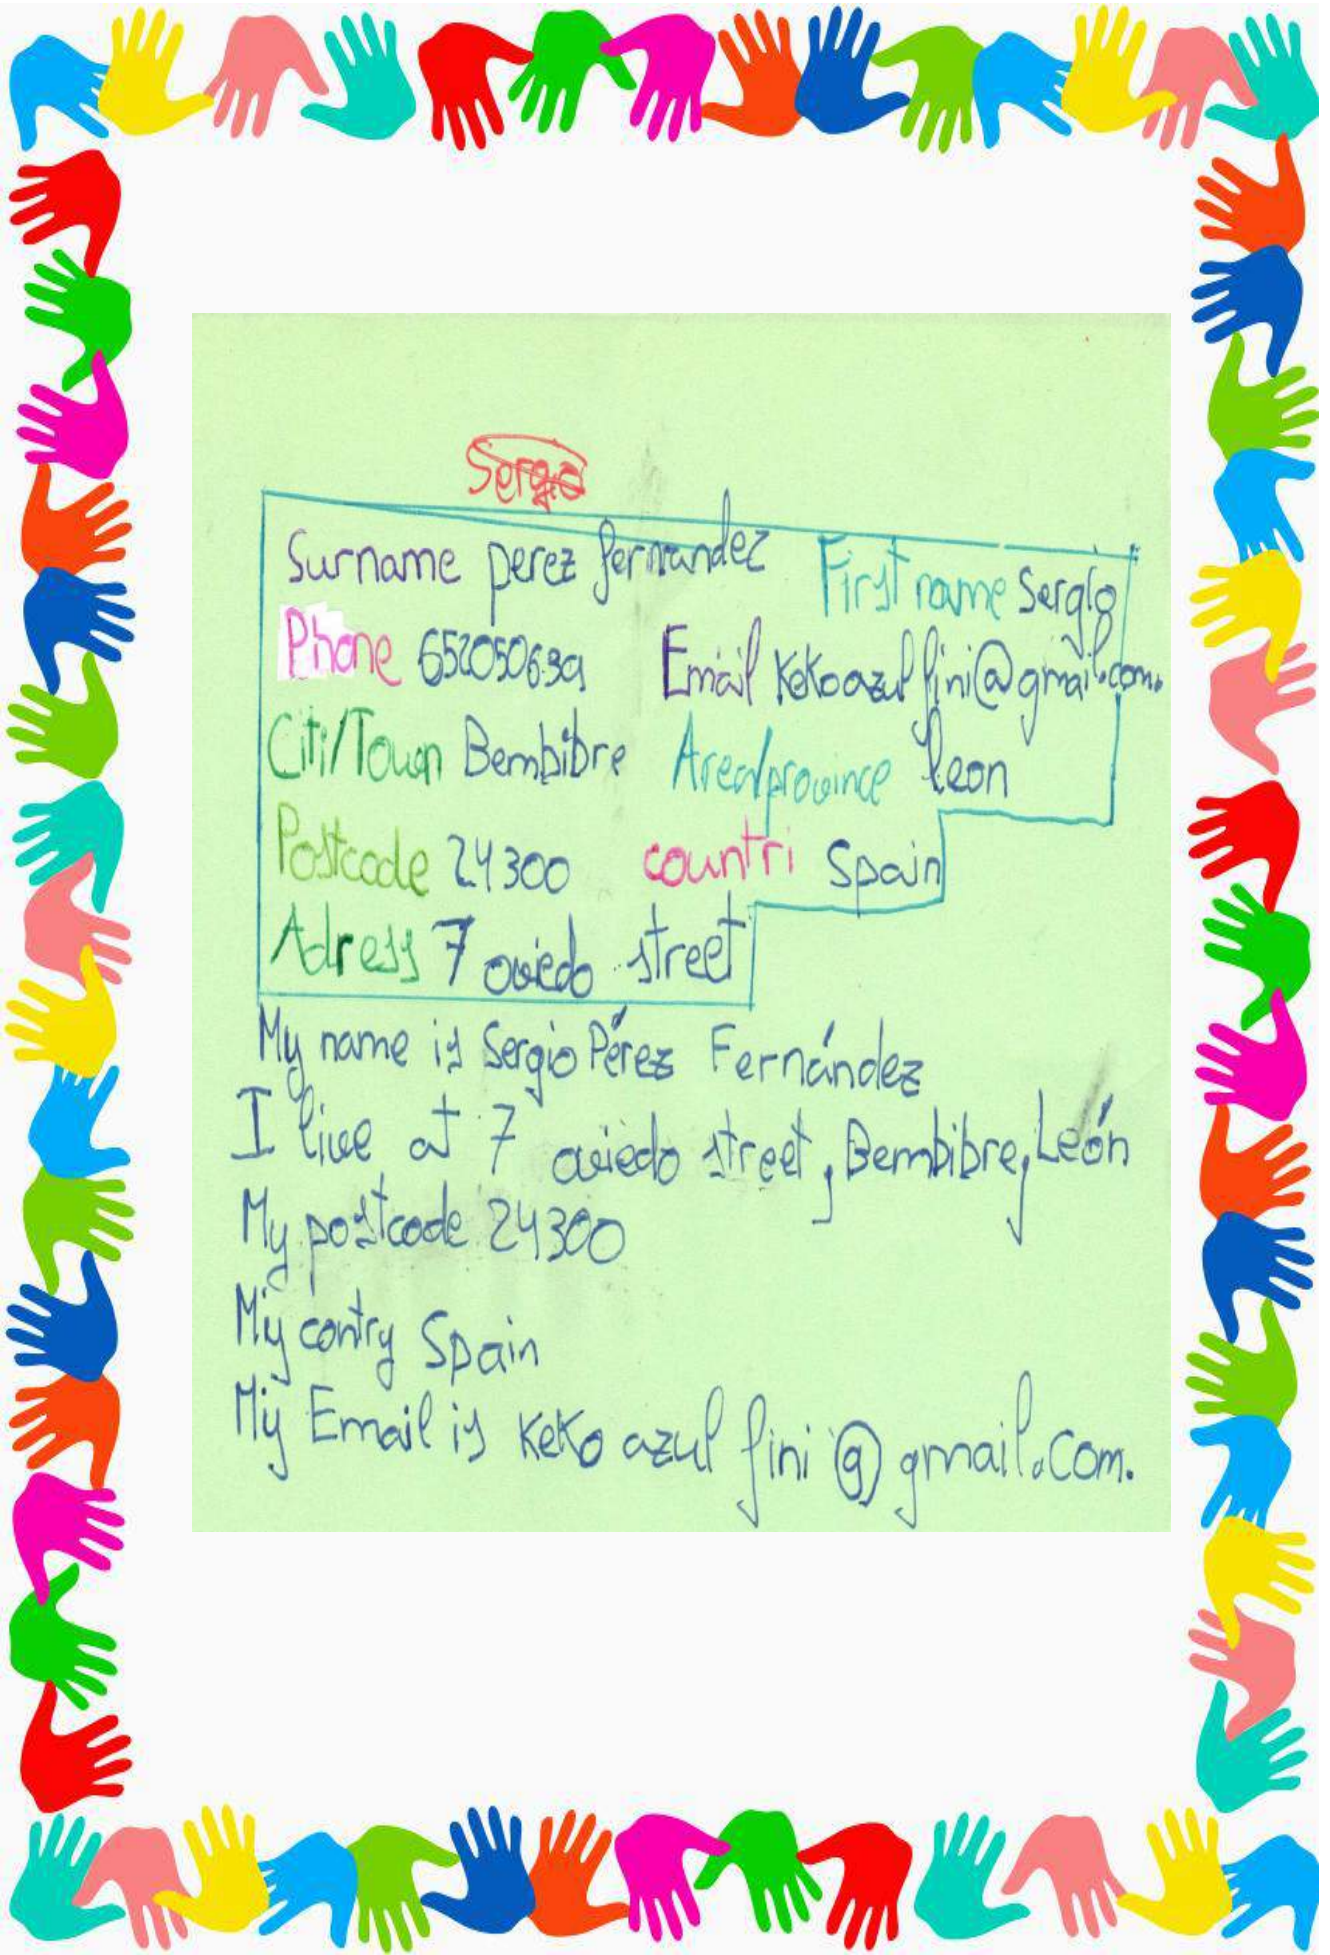 Sergio
Surname perez fernandez First name Sergio
Phone 652050639 Email Kekoazulfini@gmail.com.
Citi/Town Bembibre Area/province leon
Postcode 24300 countri Spain
Adress 7 oviedo street
My name is Sergio Pérez Fernández
I live at 7 oviedo street, Bembibre, León
My postcode 24300
My contry Spain
My Email is keko azul fini @ gmail.com.